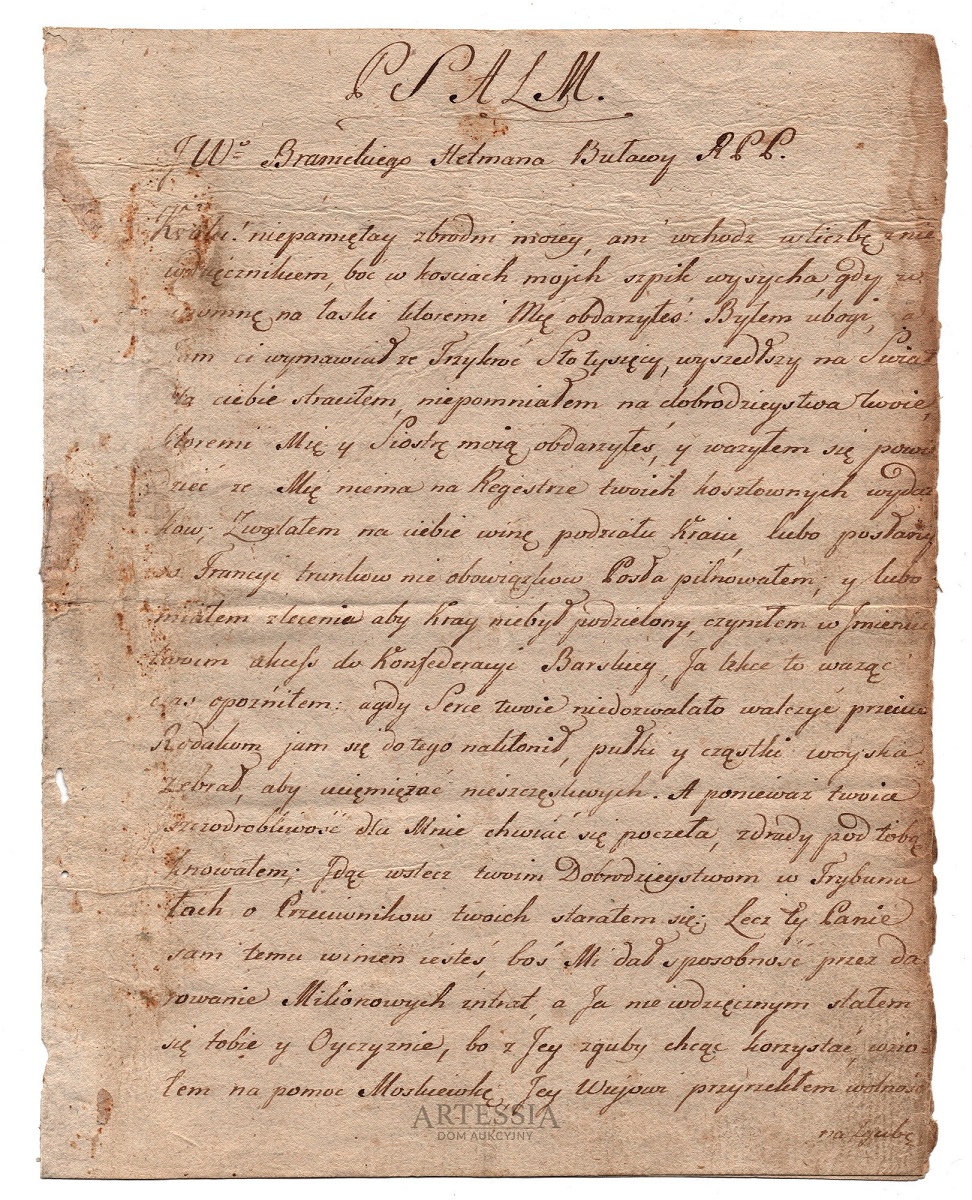 PSALM.
JWo Branickiego Hetmana Buławy RPP.
Królu! niepámiętay zbrodni moiey, ani wchodź w liczbę z nie
wdzięcznikiem, boć w kosciach mojch szpik wysycha, gdy w
spomnę na łaski ktoremi Mię obdarzyłeś: Byłem ubogi, a
Jam ci wymawiał ze Trzykroć Sto tysięcy, wyszedłszy na Swiat
dla ciebie straciłem, niepomniałem na dobrodzieystwa twoie,
ktoremi Mię y Siostrę moią obdarzyłeś, y ważyłem się powie
dzieć ze Mię niema na Regestrze twoich kosztownych wydat
kow; Zwalałem na ciebie winę podziału Kraiu, lubo posłany
do Francyi trunkow nie obowiązkow Posła pilnowałem; y lubo
miałem zlecenia aby Kray niebył podzielony, czyniłem w Jmieniu
twoim akcess do Konfederacyi Barskiey, Ja lekce to ważąc
czas opoźniłem: a gdy Serce twoie niedozwalało walczyć przeciw
Rodakom jam się do tego nakłonił, pułki y cząstki woyska
zebrał, aby uciemiężać nieszczęsliwych. A ponieważ twoia
szczodrobliwość dla Mnie chwiać się poczeła, zdrady pod tobą
knowałem; Jdąc wstecz twoim Dobrodzieystwom w Trybuna
łach o Przeciwnikow twoich starałem się; Lecz ty Panie
sam temu winień iesteś, boś Mi dał sposobność przez da
rowanie Milionowych intrat, a Ja niewdzięcznym stałem
się tobie y Oyczyznie, bo z Jey zguby chcąc korzystać, wzio
łem na pomoc Moskiewkę, Jey Wujowi przyrzekłem wolność
na zgubę
ARTESSIA
DOM AUKCYJNY